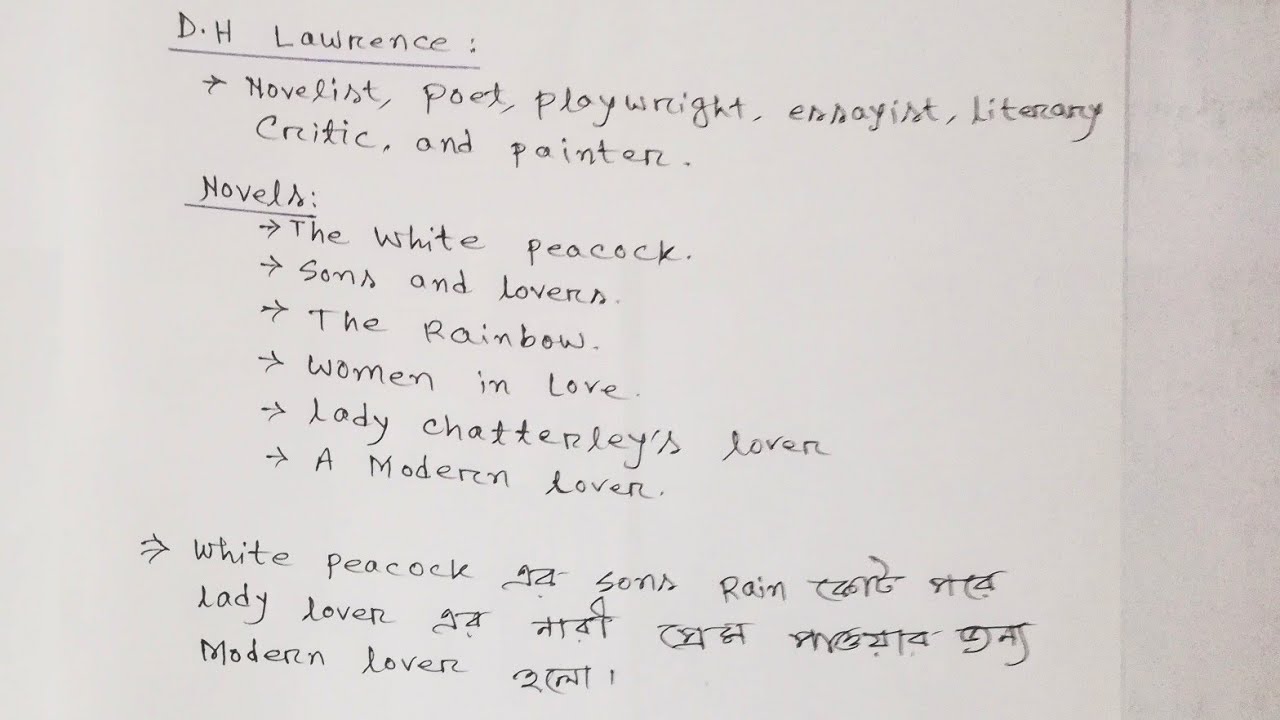 D.H Lawrence:
→ Novelist, poet, playwright, essayist, literary
Critic, and painter.
Novels:
→ The White peacock.
→ Sons and lovers.
→ The Rainbow.
→ Women in Love.
→ Lady Chatterley's lover
→ A Modern lover.
⇒ White peacock এর sons Rain কোট পরে
Lady lover এর নারী প্রেম পাওয়ার জন্য
Modern lover হলো।